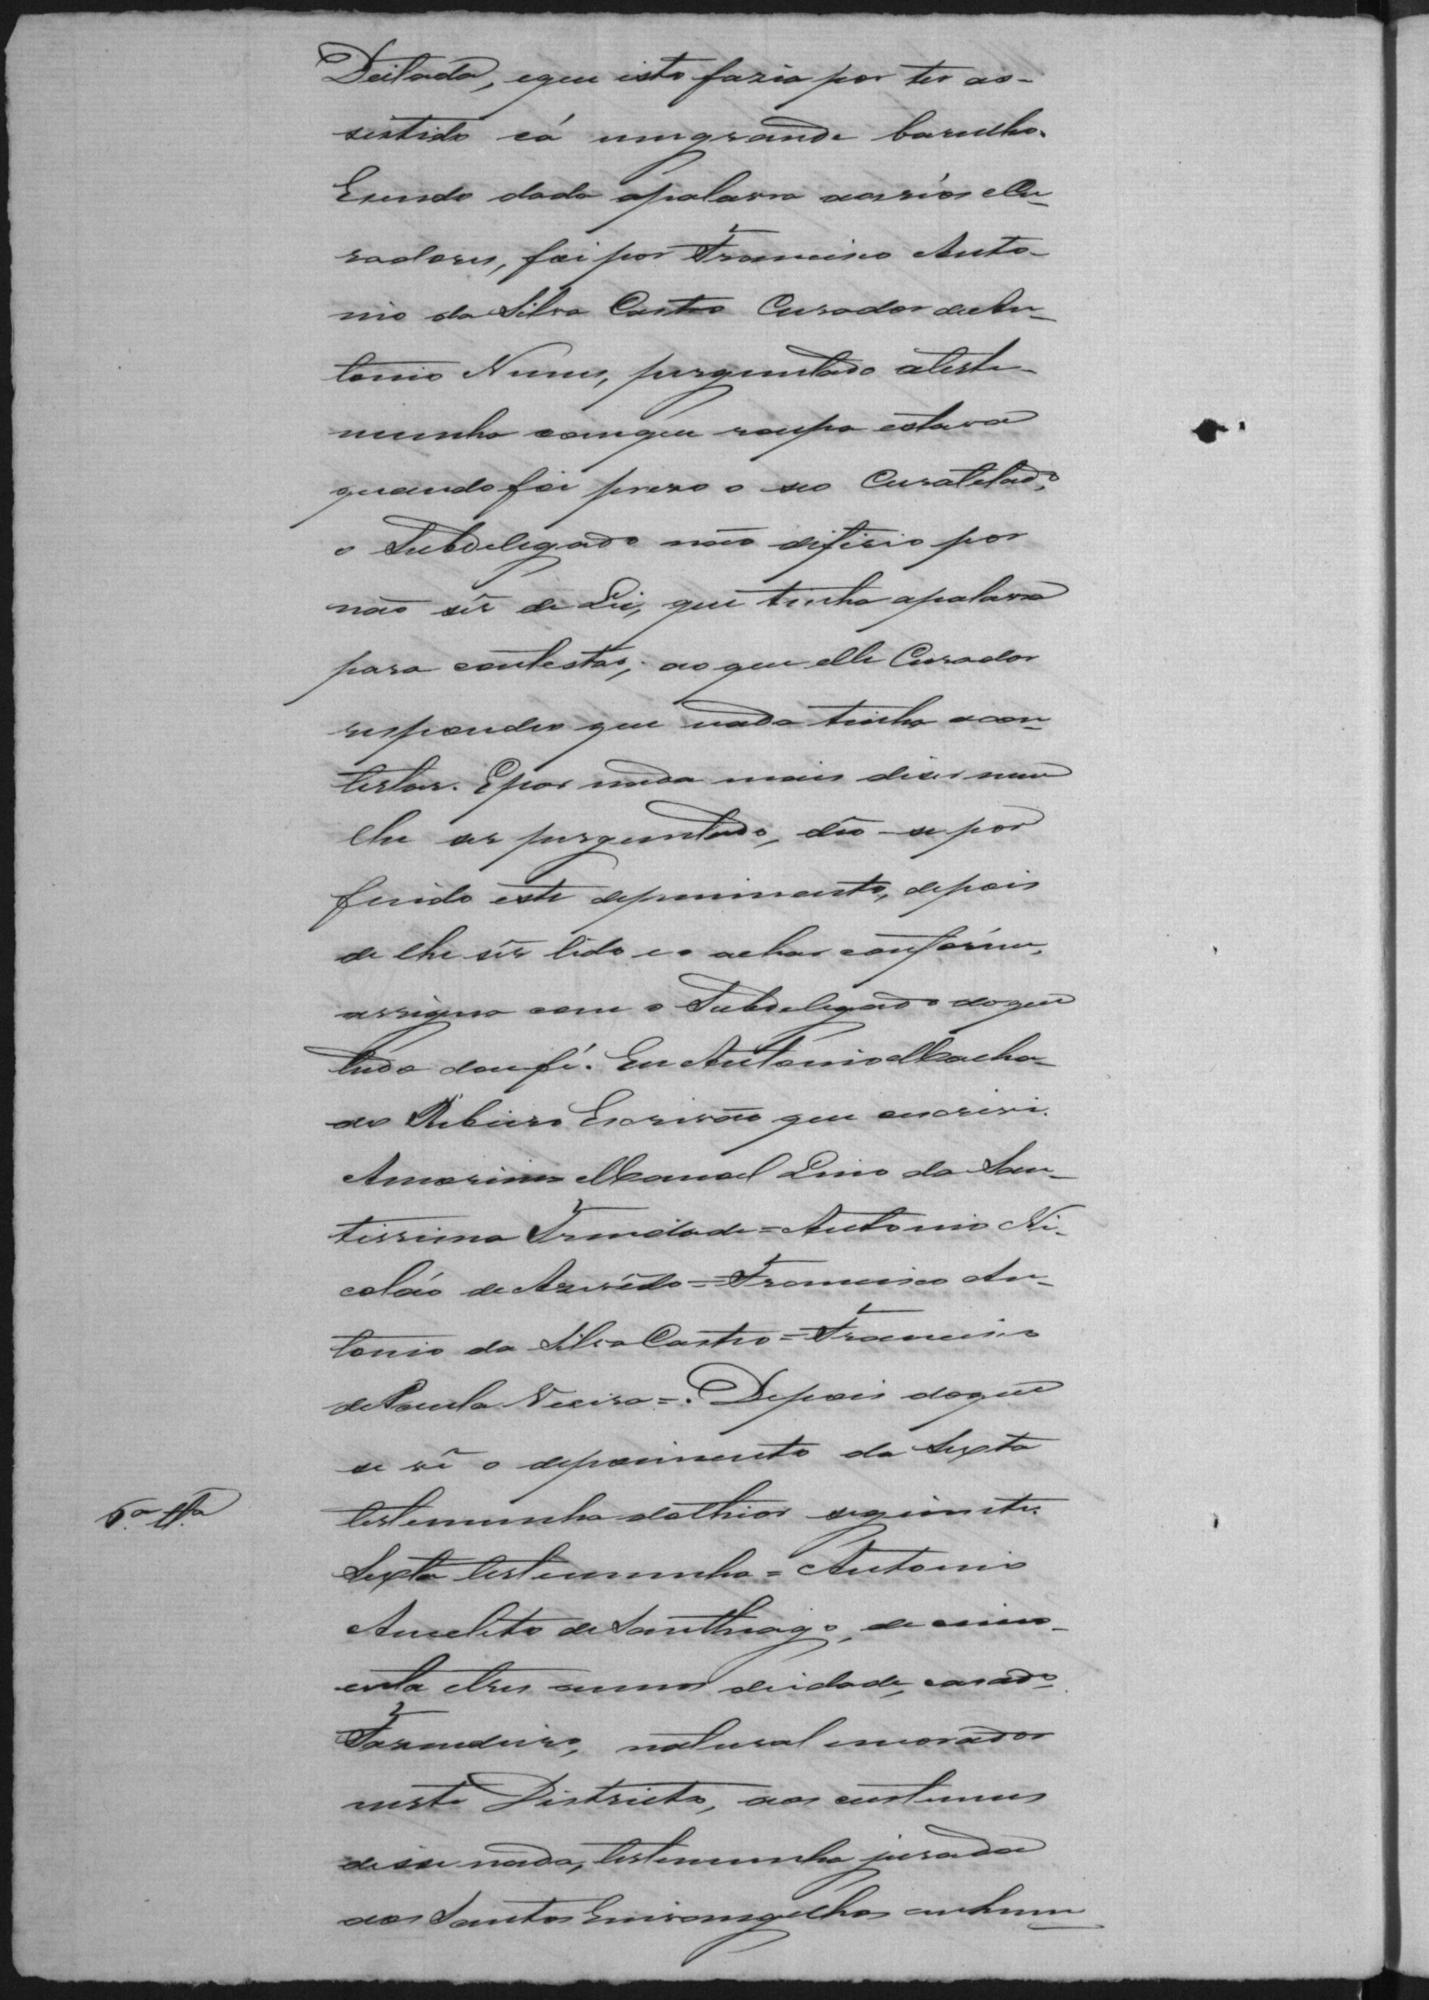 Deitada, eque isto fazia por ter as-
sistido cá umgrande barulho.
Esendo dada apalavra aosréos eCu-
radores, foi por Francisco Anto-
nio da Silva Castro Curador deAn-
tonio Nunes, perguntado ateste-
munha comque roupa estava
quando foi prezo o seo Curatelado,
o Subdelegado não diferio por
não sêr de Lei, que tinha apalavra
para contestar; ao que elle Curador
respondeo que nada tinha acon-
testar. Epor nada mais dizer nem
lhe ser perguntado, déo-se por
findo este depoimento, depois
de lhe sêr lido e o achar confórme,
assigna com o Subdelegado doque
tudo doufé. Eu AntonioMacha-
do Ribeiro Escrivão que escrevi.
Amorim Manoel Lino da San-
tissima Trindade = Antonio Ni-
coláo de Azevêdo = Francisco An-
tonio da SilvaCastro = Francisco
dePaula Vieira =. Depois doque
se vê o depoimento da Sexta
testemunha dothior seguinte.
6.ª tt.ª
Sexta testemunha = Antonio
Anecleto de Santhiago, de cinco-
enta etres annos deidade, casado
Fazendeiro, natural emorador
neste Districto, aos custumes
disse nada, testemunha jurada
aos Santos Envangelhos emhum